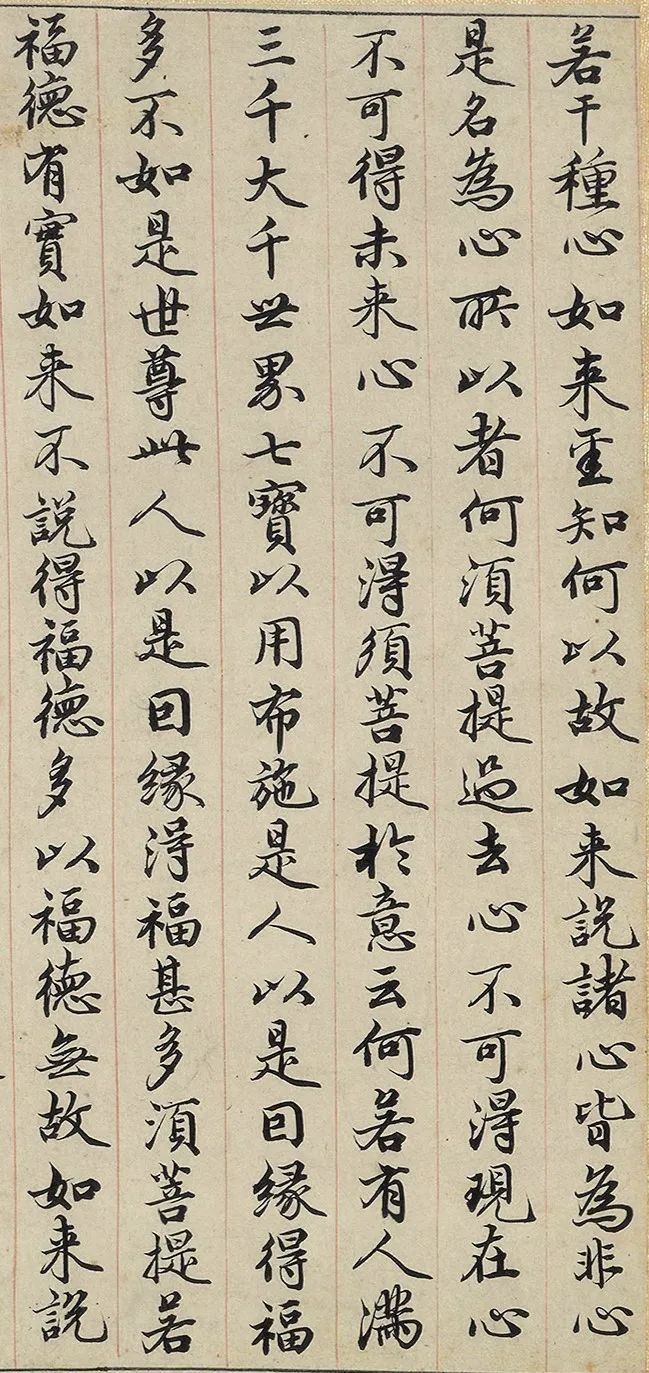 若干種心如来𢘻知何以故如来説諸心皆為非心
是名為心所以者何須菩提過去心不可得現在心
不可得未来心不可得須菩提於意云何若有人滿
三千大千世界七寶以用布施是人以是因縁得福
多不如是世尊此人以是因縁得福甚多須菩提若
福德有實如来不說得福德多以福德無故如来說